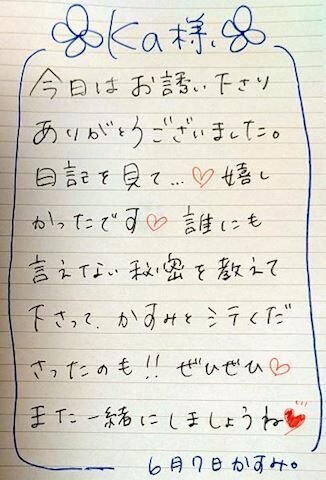 Ka様、
今日はお誘い下さり
ありがとうございました。
日記を見て...♡嬉し
かったです♡ 誰にも
言えてない秘密を教えて
下さって、かすみとシテくだ
さったのも!! ぜひぜひ♡
また一緒にしましょうね♥
6月7日かすみ。